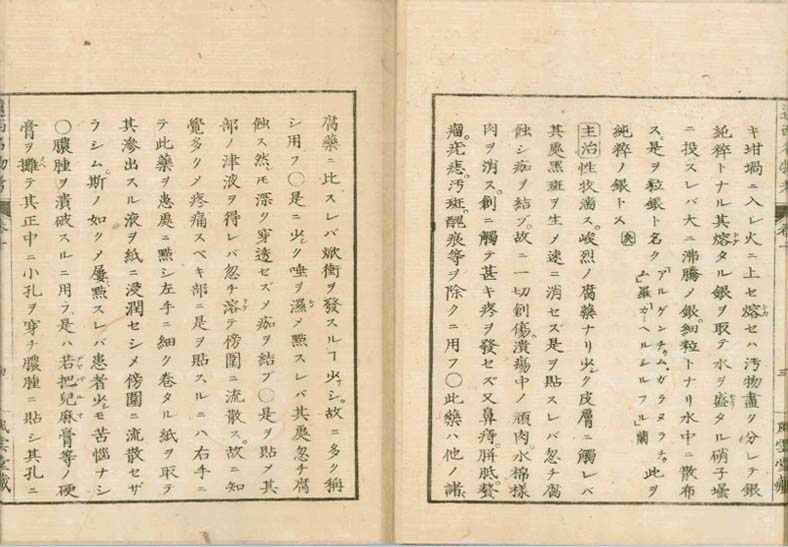 キ坩堝ニ入レ火ニ上セ熔セハ汚物盡ク分レテ銀
純粹トナル其熔タル銀ヲ取テ水ヲ盛タル硝子壜
ニ投スレバ大ニ沸騰メ銀細粒トナリ水中ニ散布
ス是ヲ粒銀ト名ク アルゲンチュム、ガラヌラチュム羅 ガーヘルシルフル蘭 此ヲ
純粹ノ銀トス
主治 性收濇ス峻烈ノ腐藥ナリ少ク皮層ニ觸レバ
其處黑斑ヲ生メ速ニ消セズ是ヲ貼スレバ忽チ腐
蝕シ痂ヲ結ブ故ニ一切創傷潰瘍中ノ頑肉水棉樣
肉ヲ消ス創ニ觸テ甚キ疼ヲ發セズ又鼻痔胼胝贅
瘤疣痣汚斑醜痕等ヲ除クニ用フ〇此藥ハ他ノ諸
腐藥ニ比スレバ焮衝ヲ發スルヿ少シ故ニ多ク稱
シ用フ〇是ニ少ク唾ヲ濕メ點スレバ其處忽チ腐
蝕ス然ドモ深ク穿透セズメ痂ヲ結ブ〇是ヲ貼メ其
部ノ津液ヲ得レバ忽チ溶テ傍圍ニ流散ス故ニ知
覺多クメ疼痛スベキ部ニ是ヲ貼スルニハ右手ニ
テ此藥ヲ患處ニ點シ左手ニ細ク巻タル紙ヲ取テ
其滲出スル液ヲ紙ニ浸潤セシメ傍圍ニ流散セザ
ラシム斯ノ如クメ屢點スレバ患者少シモ苦惱ナシ
〇膿腫ヲ潰破スルニ用フ是ハ若把兒麻膏等ノ硬
膏ヲ攤テ其正中ニ小孔ヲ穿チ膿腫ニ貼シ其孔ニ
風雲堂藏